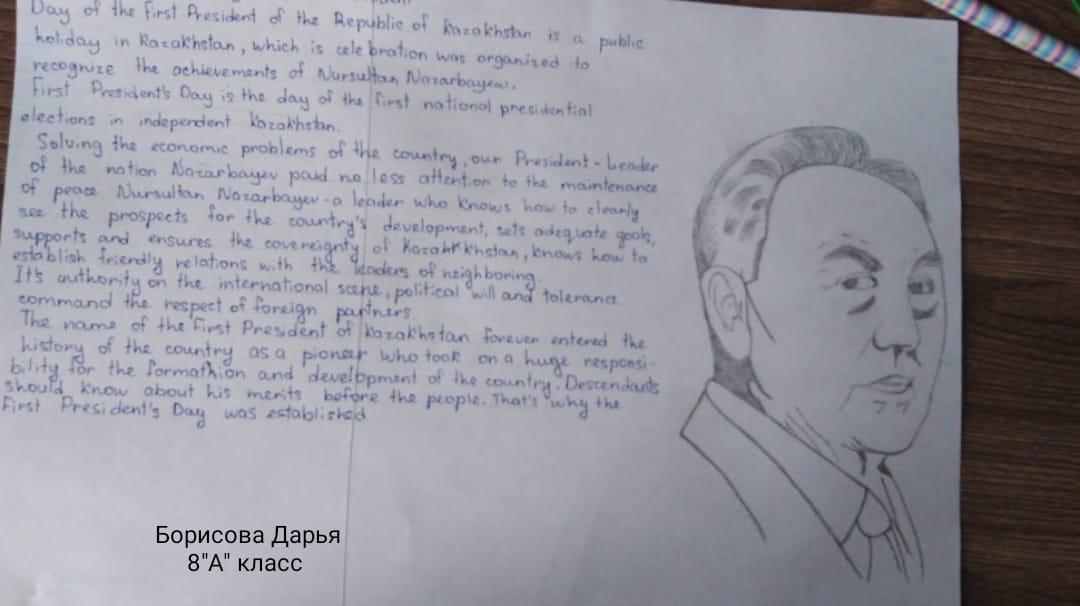 Day of the First President of the Republic of Kazakhstan is a public
holiday in Kazakhstan, which is celebration was organized to
recognize the achievements of Nursultan Nazarbayew.
First President's Day is the day of the first national presidential
elections in independent Kazakhstan.
Solving the economic problems of the country, our President - Leader
of the nation Nazarbayev paid no less attention to the maintenance
of peace Nursultan Nazarbayev - a leader who knows how to clearly
see the prospects for the country's development, sets adequate goals,
supports and ensures the covereignty of Kazakhkhstan, knows how to
establish friendly relations with the leaders of neighboring.
It's authority on the international scene, political will and tolerance
command the respect of foreign partners
The name of the First President of Kazakhstan forever entered the
history of the country as a pioneer who took on a huge responsi-
bility for the formathion and development of the country. Descendants
should know about his merits before the people. That's why the
First President's Day was established
Борисова Дарья
8"А" класс